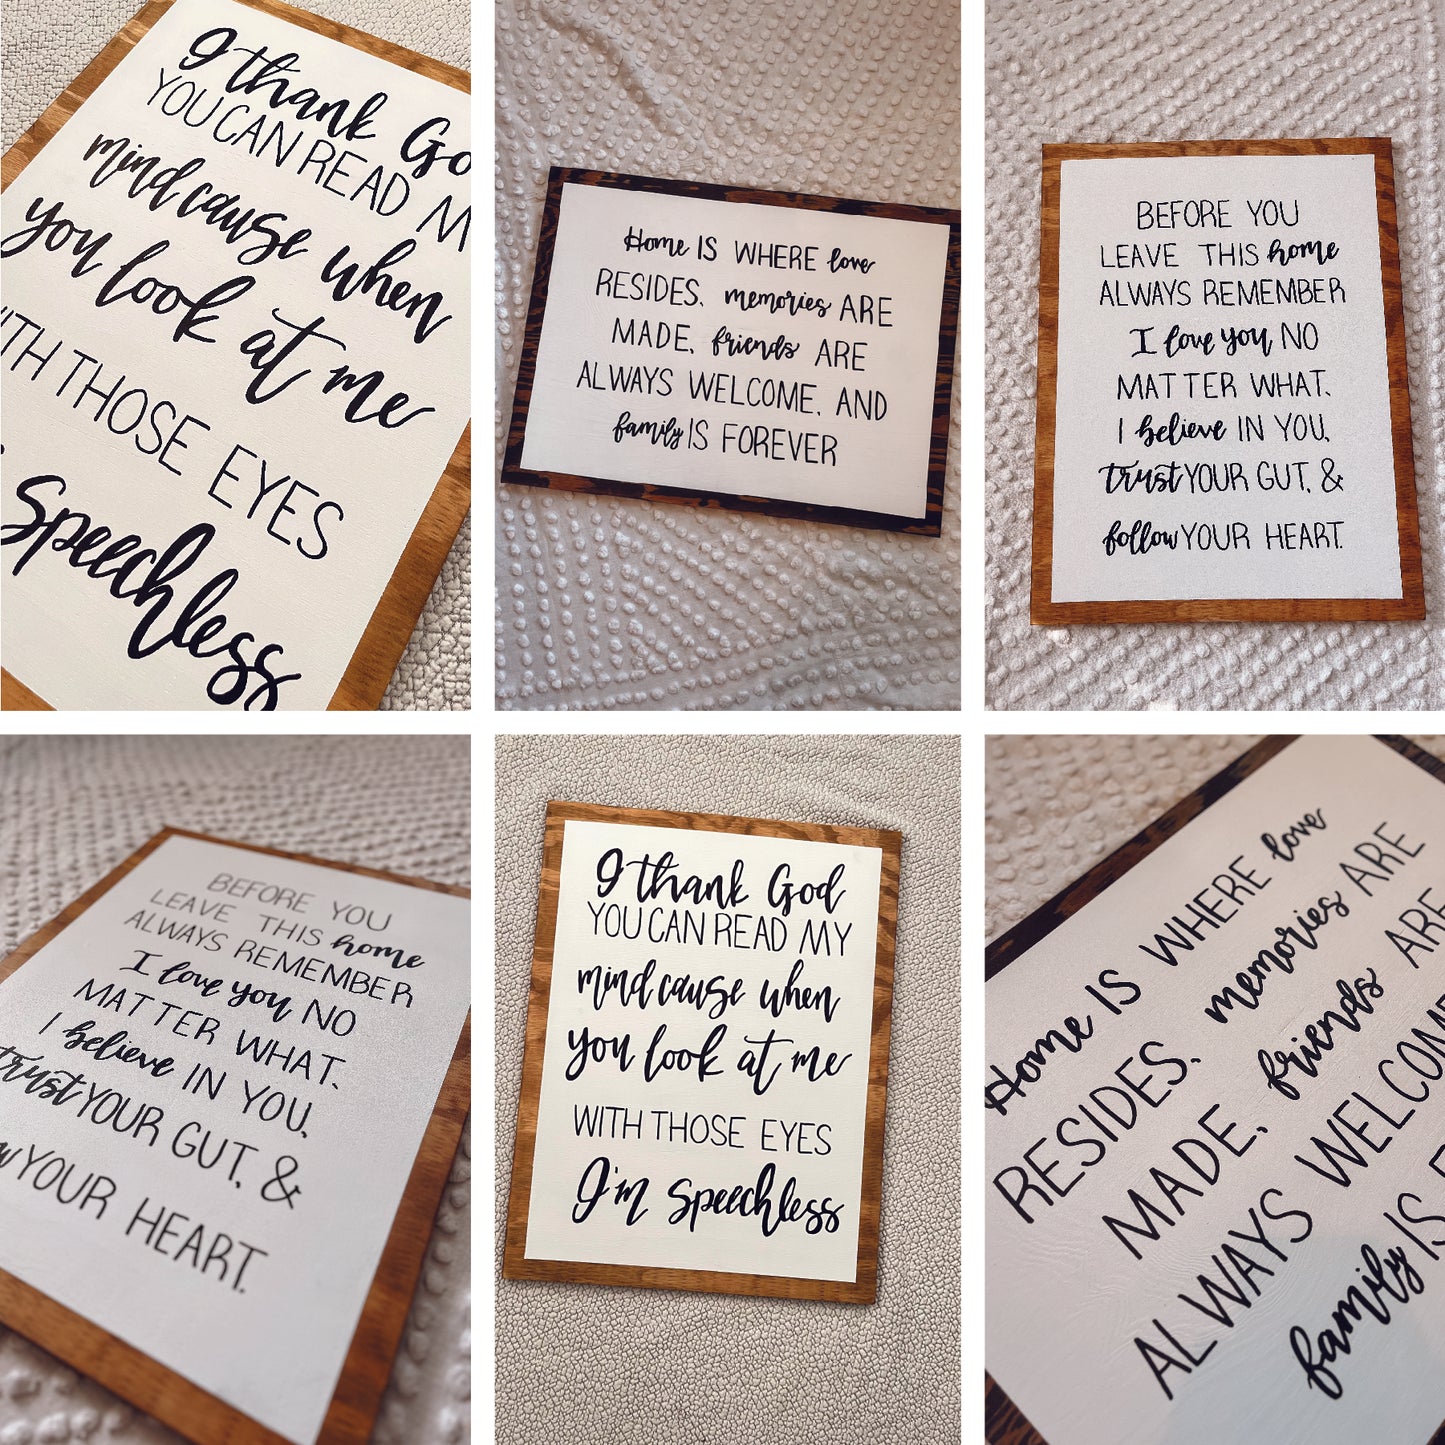 I thank Go
YOU CAN READ M
mind cause when
you look at me
WITH THOSE EYES
Speechless
Home IS WHERE love
RESIDES. memories ARE
MADE. friends ARE
ALWAYS WELCOME. AND
family IS FOREVER
BEFORE YOU
LEAVE THIS home
ALWAYS REMEMBER
I love you NO
MATTER WHAT.
I believe IN YOU.
trust YOUR GUT. &
follow YOUR HEART.
BEFORE YOU
LEAVE THIS home
ALWAYS REMEMBER
I love you NO
MATTER WHAT.
I believe IN YOU.
trust YOUR GUT. &
w YOUR HEART.
I thank God
YOU CAN READ MY
mind cause when
you look at me
WITH THOSE EYES
I'm Speechless
Home IS WHERE love
RESIDES. memories ARE
MADE. friends ARE
ALWAYS WELCOME
family IS F